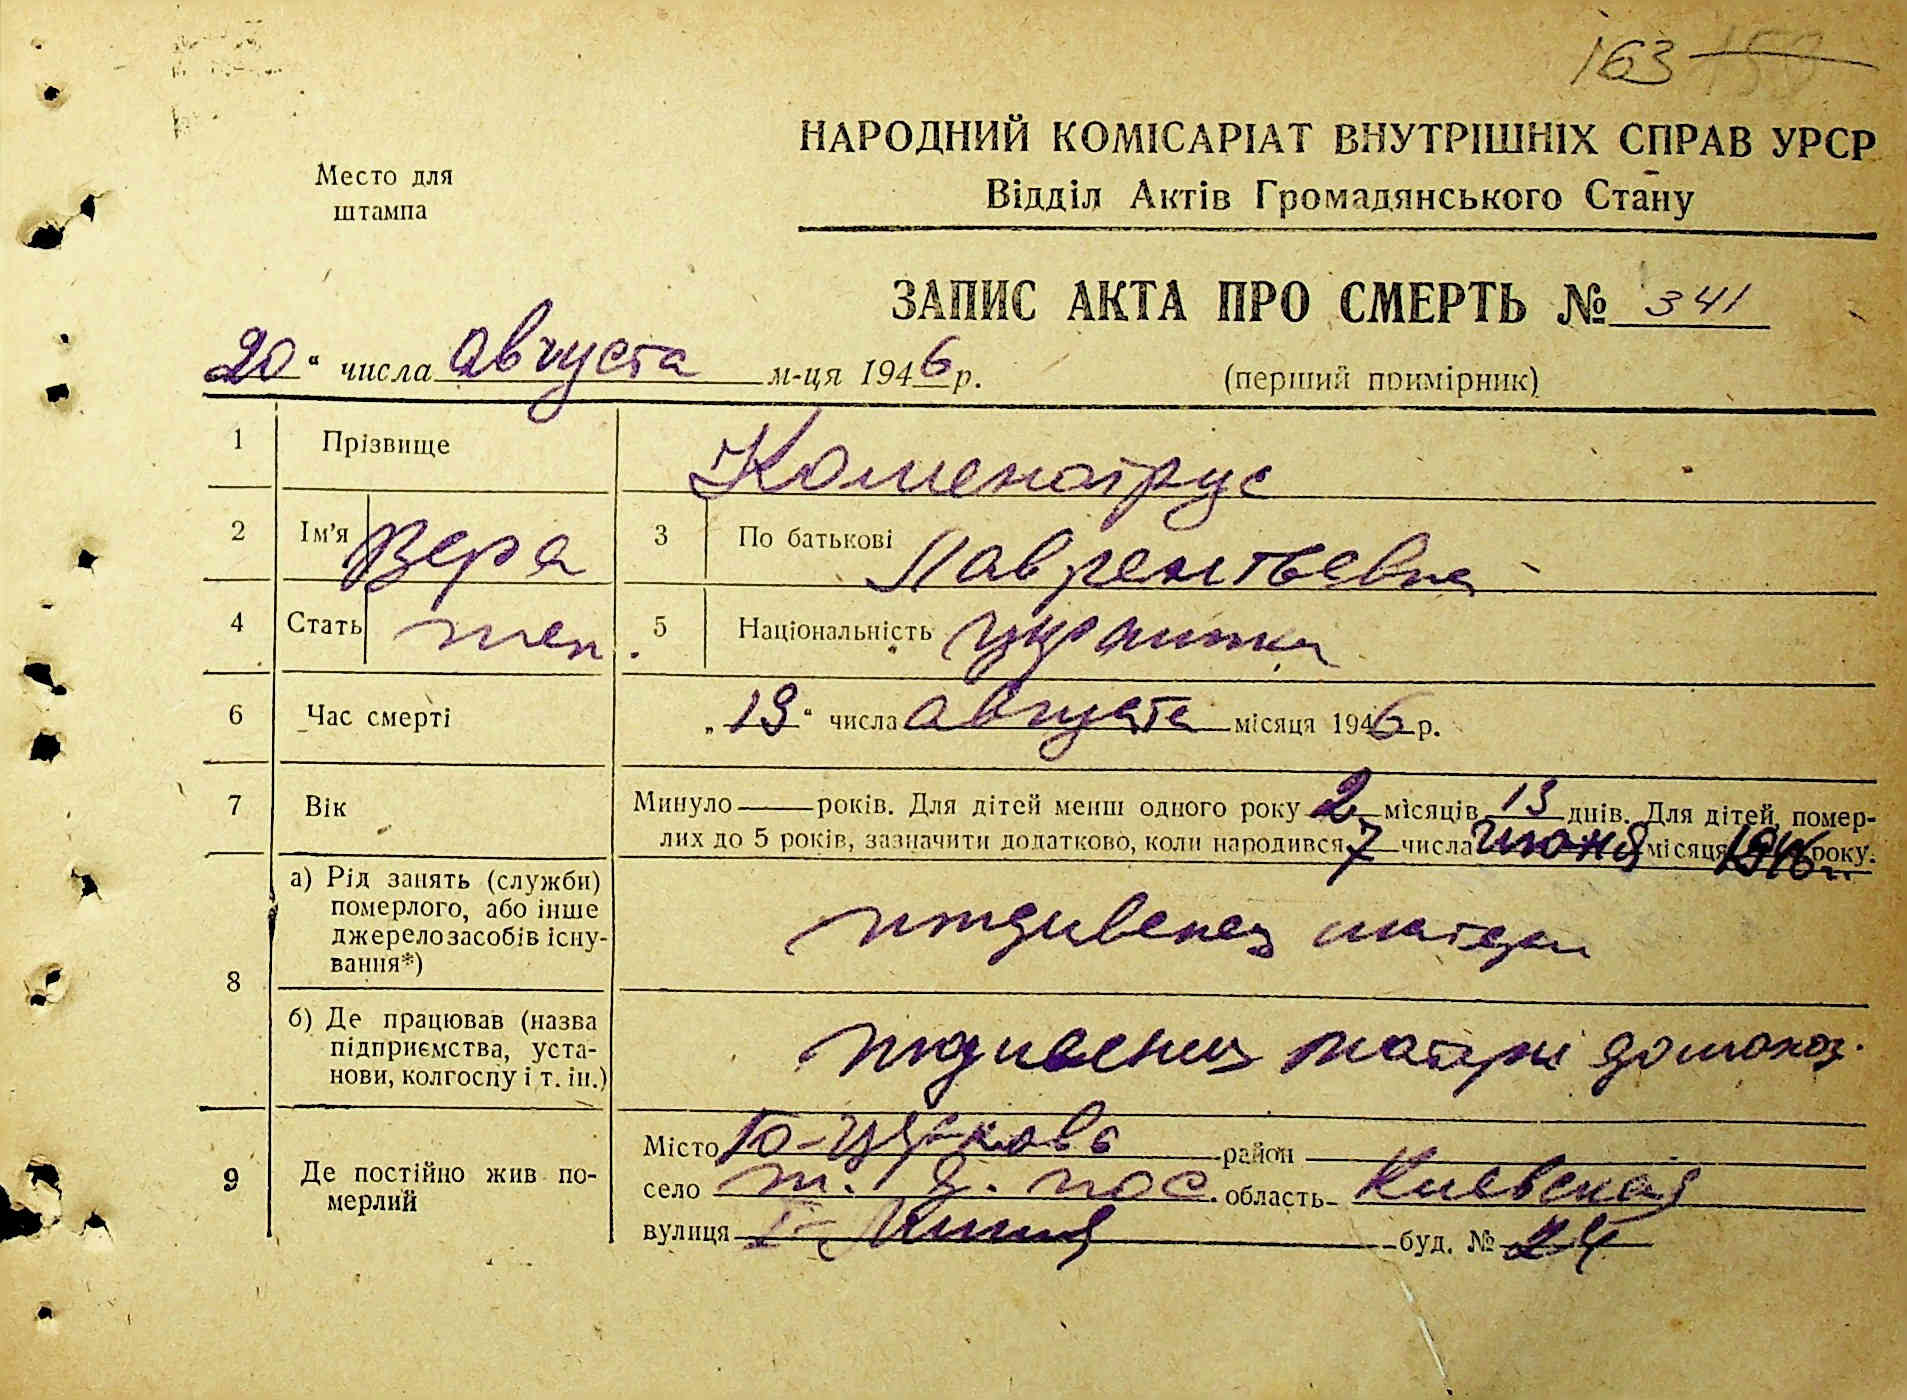 163 150
НАРОДНИЙ КОМІСАРІАТ ВНУТРІШНІХ СПРАВ УРСР
Место для
штампа
Відділ Актів Громадянського Стану
ЗАПИС АКТА ПРО СМЕРТЬ № 341
20 " числа августа м-ця 1946 р.
(перший примірник)
1 Прізвище
2 Ім'я Вера 3 По батькові Лаврентьевна
4 Стать жен. 5 Національність украинка
6 Час смерті „ 19 " числа августа місяця 1946 р.
7 Вік Минуло — років. Для дітей менш одного року 2 місяців 13 днів. Для дітей, помер-
лих до 5 років, зазначити додатково, коли народився 7 числа июня місяця 1946 року.
8 а) Рід занять (служби)
померлого, або інше
джерело засобів існу-
вання*)
иждивенец матери
б) Де працював (назва
підприємства, уста-
нови, колгоспу і т. ін.)
иждивенец матери домохоз.
9 Де постійно жив по-
мерлий
Місто Б-Церковь район
село ж. д. пос. область Киевская
вулиця I- Линия буд. № 24